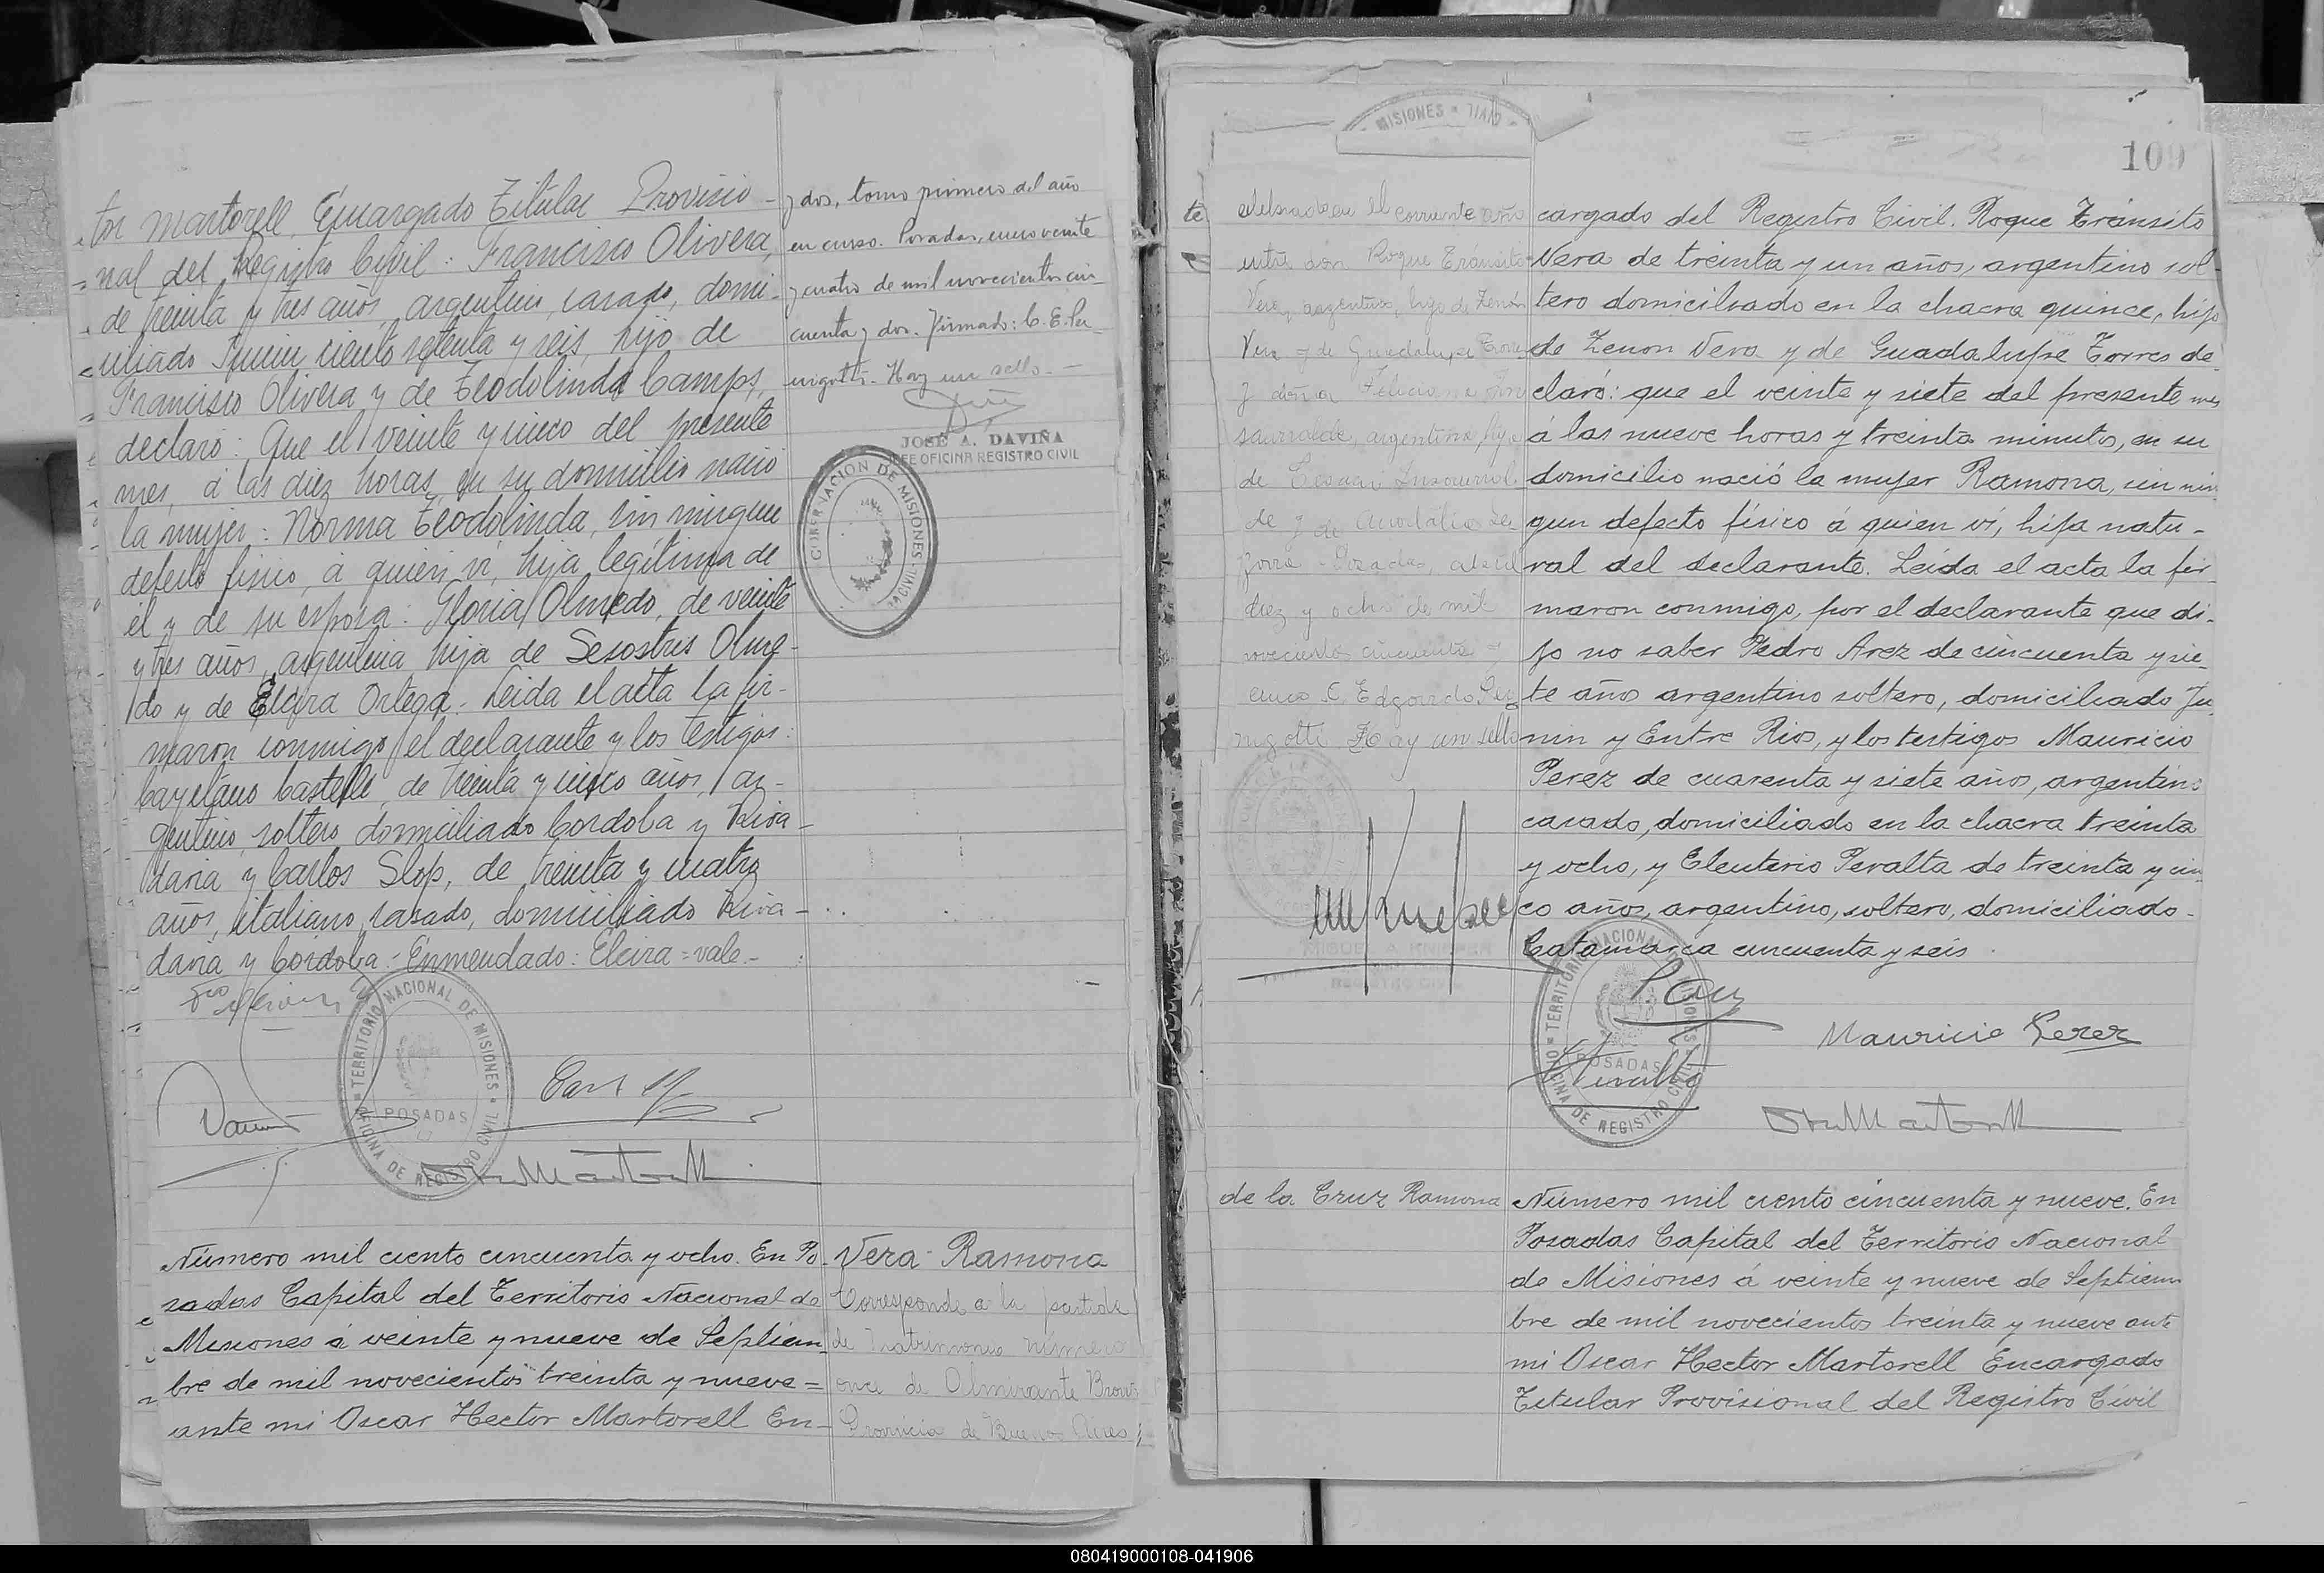 tor Martorell, Encargado Titular Provisio-
nal del Registro Civil: Francisco Olivera,
de treinta y tres años, argentino, casado, domi-
ciliado Junin ciento setenta y seis, hijo de
Francisco Olivera y de Teodolinda Camps,
declaró: Que el veinte y cinco del presente
mes, á las diez horas, en su domicilio nació
la mujer: Norma Teodolinda, sin ningun
defecto fisico, á quien ví, hija legitima de
él y de su esposa: Gloria Olmedo, de veinte
y tres años, argentina hija de Sesostris Olme-
do y de Elcira Ortega. Leida el acta la fir-
maron conmigo el declarante y los testigos:
Cayetano Castelli, de treinta y cinco años, ar-
gentino, soltero domiciliado Cordoba y Riva-
davia y Carlos Slop, de treinta y cuatro
años, italiano, casado, domiciliado Riva-
davia y Cordoba.- Enmendado: Elcira = vale.-
y dos, tomo primero del año
en curso. Posadas, enero veinte
y cuatro de mil novecientos cin-
cuenta y dos. Firmado: C. E. Per-
nigotti. Hay un sello.-
JOSE A. DAVIÑA
JEFE OFICINA REGISTRO CIVIL
GOBERNACION DE MISIONES
TERRITORIO NACIONAL DE MISIONES
POSADAS
OFICINA DE REGISTRO CIVIL
Número mil ciento cincuenta y ocho. En Po-
sadas Capital del Territorio Nacional de
Misiones á veinte y nueve de Septiem-
bre de mil novecientos treinta y nueve =
ante mi Oscar Hector Martorell En-
Vera Ramona
Corresponde a la partida
de Matrimonio número
once de Almirante Brown
Provincia de Buenos Aires,
MISIONES
CIVIL
109
te
celebrado en el corriente año
entre don Roque Tránsito
Vera, argentino, hijo de Zenón
Vera y de Guadalupe Torres
y doña Feliciana Ins
saurralde, argentina, hija
de Insaurral
de y de
Posadas, abril
diez y ocho de mil
novecientos cincuenta y
cinco C. Edgardo Per
nigotti Hay un sello
cargado del Registro Civil. Roque Tránsito
Vera de treinta y un años, argentino sol-
tero domiciliado en la chacra quince, hijo
de Zenon Vera y de Guadalupe Torres de-
claró: que el veinte y siete del presente mes
á las nueve horas y treinta minutos, en su
domicilio nació la mujer Ramona, sin nin-
gun defecto físico á quien ví, hija natu-
ral del declarante. Leída el acta la fir-
maron conmigo, por el declarante que di-
jo no saber Pedro Arez de cincuenta y sie-
te años argentino soltero, domiciliado Ju-
nin y Entre Rios, y los testigos Mauricio
Perez de cuarenta y siete años, argentino
casado, domiciliado en la chacra treinta
y ocho, y Eleuterio Peralta de treinta y cin-
co años, argentino, soltero, domiciliado
Catamarca cincuenta y seis.
MIGUEL A. KNIEPER
REGISTRO CIVIL
Mauricio Perez
TERRITORIO NACIONAL DE MISIONES
POSADAS
OFICINA DE REGISTRO CIVIL
Peralta
de la Cruz Ramona
Número mil ciento cincuenta y nueve. En
Posadas Capital del Territorio Nacional
de Misiones á veinte y nueve de Septiem
bre de mil novecientos treinta y nueve ante
mi Oscar Hector Martorell Encargado
Titular Provisional del Registro Civil
080419000108-041906